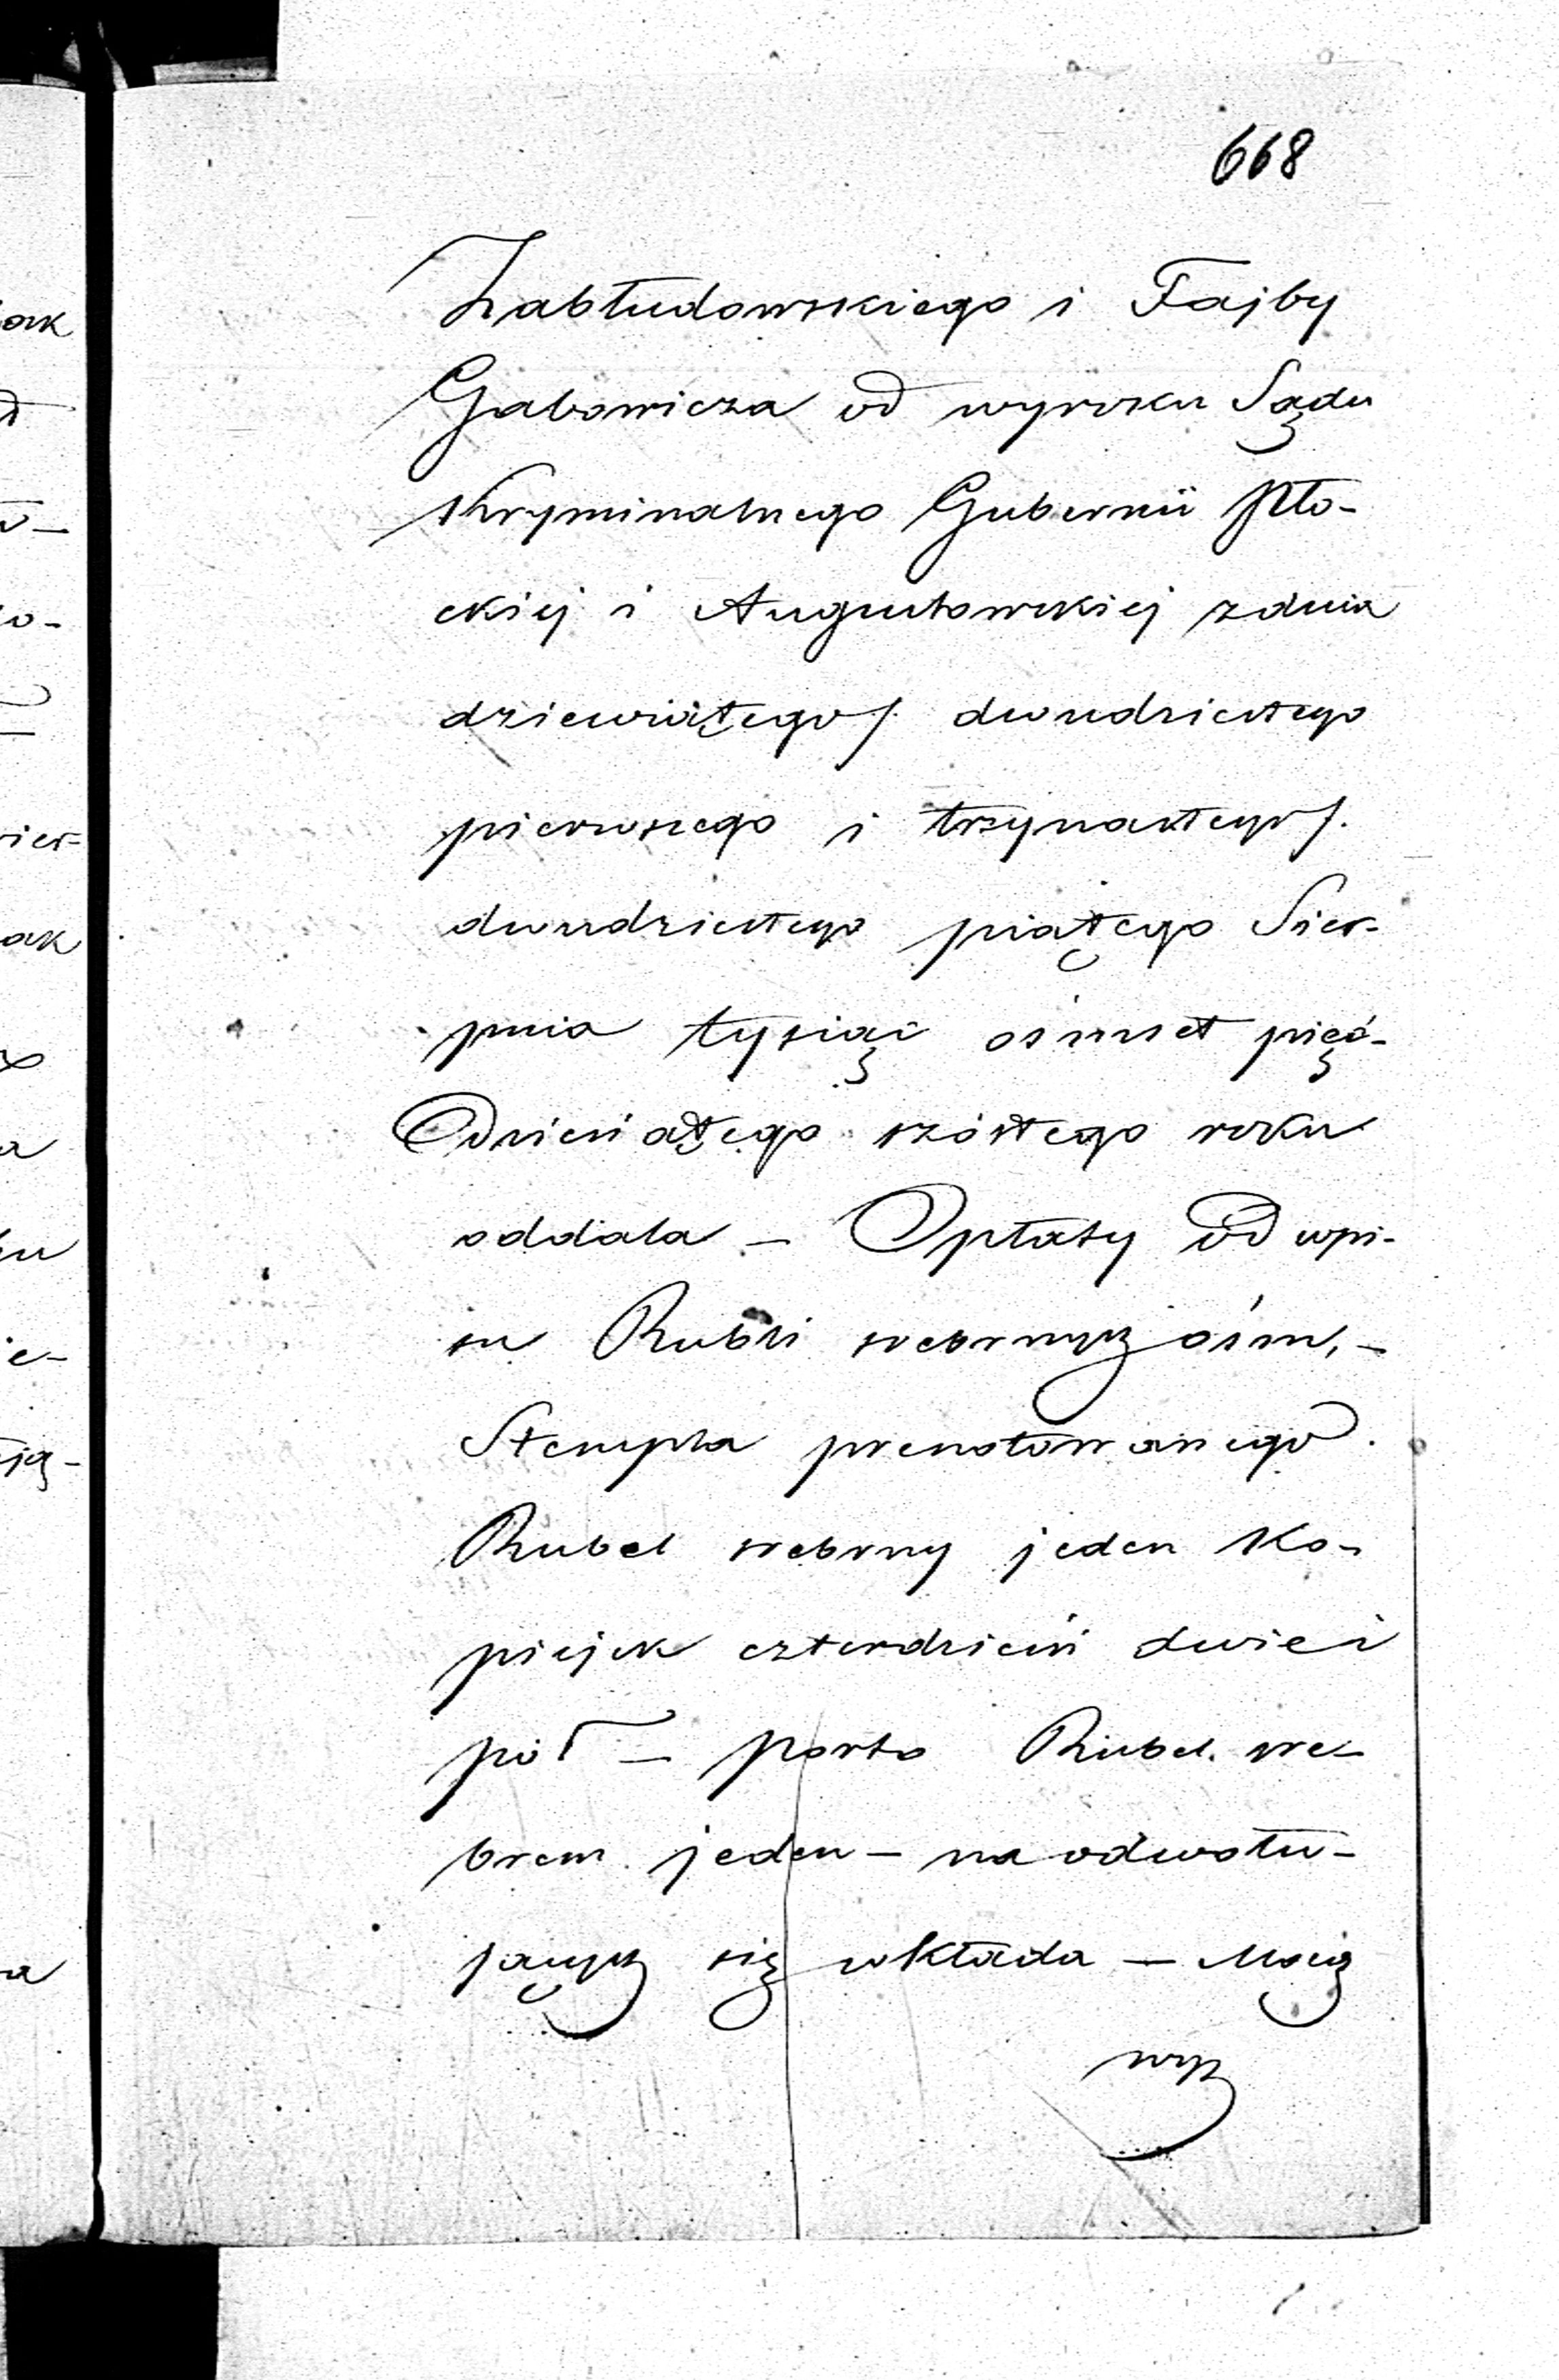 668
Zabłudowskiego i Fajby
Gabowicza od wyroku Sądu
Kryminalnego Gubernii Pło-
ckiej i Augustowskiej z dnia
dziewiątego/. dwudziestego
pierwszego i trzynastego/.
dwudziestego piątego Sier-
pnia tysiąc ośmset pięć-
Dziesiątego szóstego roku
oddala – Opłaty od wpi-
su Rubli srebrnych ośm, –
Stempla prenotowanego
Rubel srebrny jeden Ko-
piejek czterdzieści dwie i
pół – porto Rubel. sre-
brem jeden – na odwołu-
jących się wkłada – Mocą